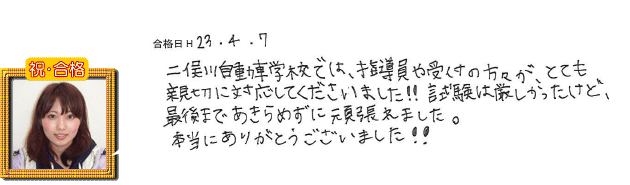 合格日 H 23.4.7
祝・合格
二俣川自動車学校では、指導員や受付の方々が、とても
親切に対応してくださいました!! 試験は厳しかったけど、
最後まであきらめずに頑張れました。
本当にありがとうございました!!